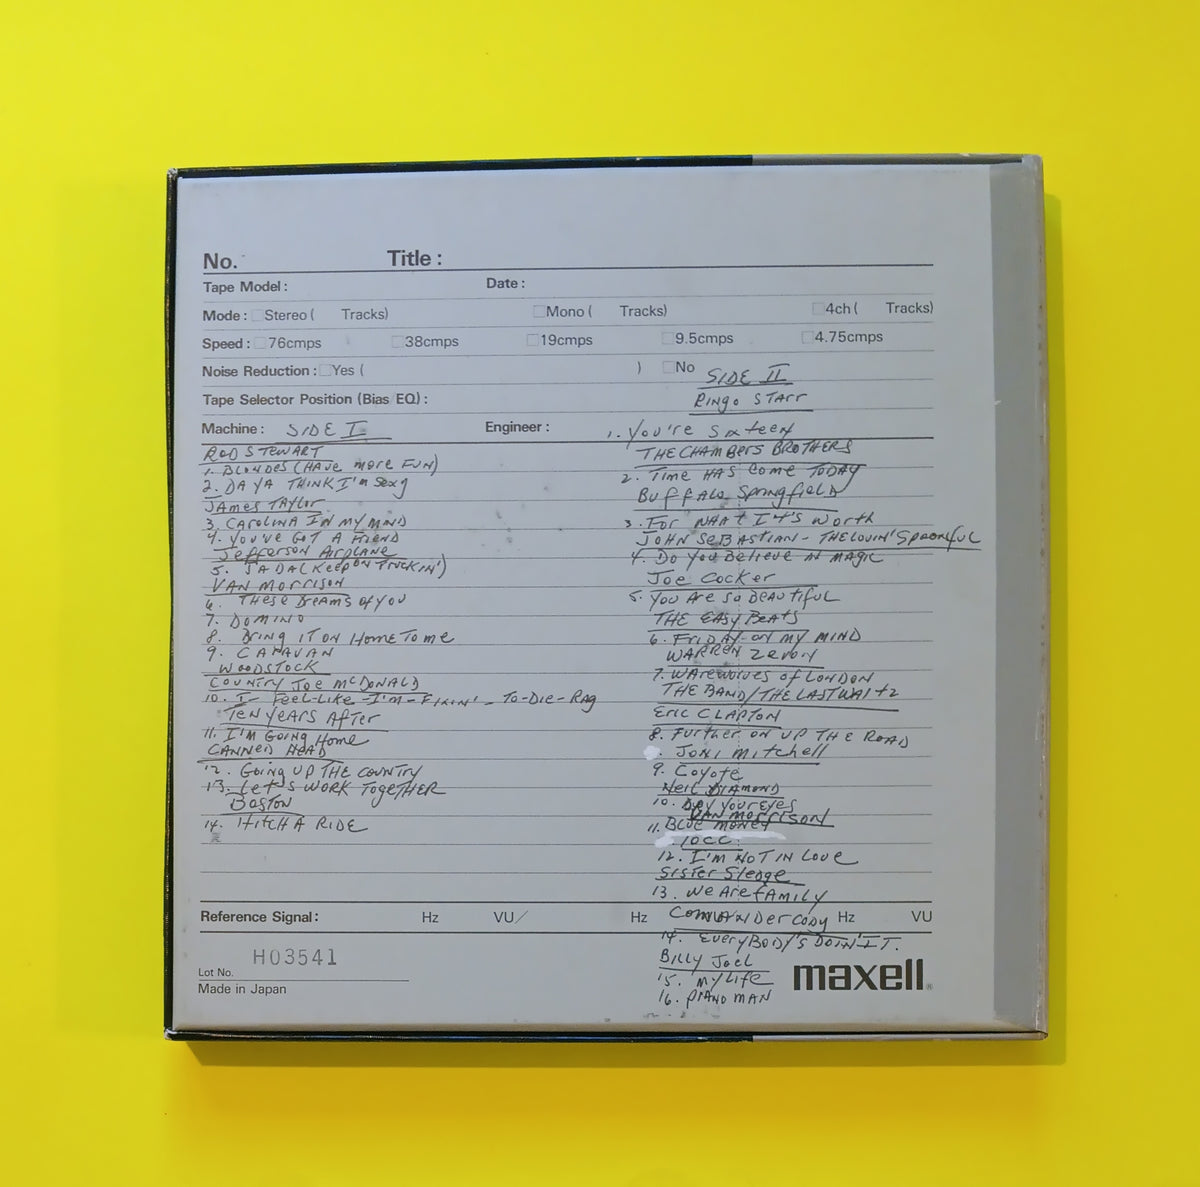 No. Title :
Tape Model : Date :
Mode : Stereo ( Tracks) Mono ( Tracks) 4ch ( Tracks)
Speed : 76cmps 38cmps 19cmps 9.5cmps 4.75cmps
Noise Reduction : Yes ( ) No
Tape Selector Position (Bias/EQ) :
Machine : SIDE I Engineer :
ROD STEWART
1. BLONDES (HAVE MORE FUN)
2. DA YA THINK I'M SEXY
JAMES TAYLOR
3. CAROLINA IN MY MIND
4. YOU'VE GOT A FRIEND
JEFFERSON AIRPLANE
5. (KEEP ON TRUCKIN')
VAN MORRISON
6. THESE DREAMS OF YOU
7. DOMINO
8. BRING IT ON HOME TO ME
9. CARAVAN
WOODSTOCK
COUNTRY JOE McDONALD
10. I-FEEL-LIKE-I'M-FIXIN'-TO-DIE-RAG
TEN YEARS AFTER
11. I'M GOING HOME
CANNED HEAD
12. GOING UP THE COUNTRY
13. LET'S WORK TOGETHER
BOSTON
14. HITCH A RIDE
SIDE II
RINGO STARR
1. YOU'RE SIXTEEN
THE CHAMBERS BROTHERS
2. TIME HAS COME TODAY
BUFFALO SPRINGFIELD
3. FOR WHAT IT'S WORTH
JOHN SEBASTIAN - THE LOVIN' SPOONFUL
4. DO YOU BELIEVE IN MAGIC
JOE COCKER
5. YOU ARE SO BEAUTIFUL
THE EASY BEATS
6. FRIDAY ON MY MIND
WARREN ZEVON
7. WAREWOLVES OF LONDON
THE BAND/THE LAST WALTZ
ERIC CLAPTON
8. FURTHER ON UP THE ROAD
JONI MITCHELL
9. COYOTE
NEIL DIAMOND
10. DRY YOUR EYES
VAN MORRISON
11. BLUE MONEY
10CC
12. I'M NOT IN LOVE
SISTER SLEDGE
13. WE ARE FAMILY
COMMANDER CODY
14. EVERYBODY'S DOIN' IT.
BILLY JOEL
15. MY LIFE
16. PIANO MAN
Reference Signal : Hz VU/ Hz Hz VU
Lot No. H03541
Made in Japan
maxell®